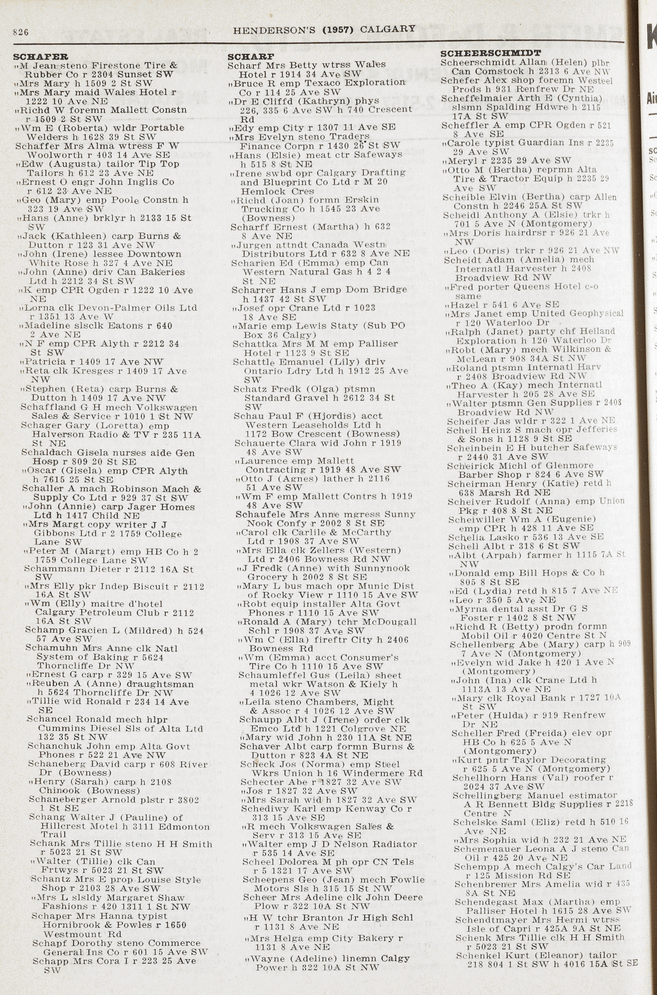 826
HENDERSON'S (1957) CALGARY
SCHAFER
"M Jean steno Firestone Tire &
Rubber Co r 2304 Sunset SW
"Mrs Mary h 1509 2 St SW
"Mrs Mary maid Wales Hotel r
1222 10 Ave NE
"Richd W foremn Mallett Constn
r 1509 2 St SW
"Wm E (Roberta) wldr Portable
Welders h 1628 39 St SW
Schaffer Mrs Alma wtrss F W
Woolworth r 403 14 Ave SE
"Edw (Augusta) tailor Tip Top
Tailors h 612 23 Ave NE
"Ernest O engr John Inglis Co
r 612 23 Ave NE
"Geo (Mary) emp Poole Constn h
323 19 Ave SW
"Hans (Anne) brklyr h 2133 15 St
SW
"Jack (Kathleen) carp Burns &
Dutton r 123 31 Ave NW
"John (Irene) lessee Downtown
White Rose h 327 4 Ave NE
"John (Anne) driv Can Bakeries
Ltd h 2212 34 St SW
"K emp CPR Ogden r 1222 10 Ave
NE
"Lorna clk Devon-Palmer Oils Ltd
r 1351 13 Ave W
"Madeline slsclk Eatons r 640
2 Ave NE
"N F emp CPR Alyth r 2212 34
St SW
"Patricia r 1409 17 Ave NW
"Reta clk Kresges r 1409 17 Ave
NW
"Stephen (Reta) carp Burns &
Dutton h 1409 17 Ave NW
Schaffland G H mech Volkswagen
Sales & Service r 1010 1 St NW
Schager Gary (Loretta) emp
Halverson Radio & TV r 235 11A
St NE
Schaldach Gisela nurses aide Gen
Hosp r 809 20 St SE
"Oscar (Gisela) emp CPR Alyth
h 7615 25 St SE
Schaller A mach Robinson Mach &
Supply Co Ltd r 929 37 St SW
"John (Annie) carp Jager Homes
Ltd h 1417 Child NE
"Mrs Margt copy writer J J
Gibbons Ltd r 2 1759 College
Lane SW
"Peter M (Margt) emp HB Co h 2
1759 College Lane SW
Schammann Dieter r 2112 16A St
SW
"Mrs Elly pkr Indep Biscuit r 2112
16A St SW
"Wm (Elly) maitre d'hotel
Calgary Petroleum Club r 2112
16A St SW
Schamp Gracien L (Mildred) h 524
57 Ave SW
Schamuhn Mrs Anne clk Natl
System of Baking r 5624
Thorncliffe Dr NW
"Ernest G carp r 329 15 Ave SW
"Reuben A (Anne) draughtsman
h 5624 Thorncliffe Dr NW
"Tillie wid Ronald r 234 14 Ave
SE
Schancel Ronald mech hlpr
Cummins Diesel Sls of Alta Ltd
132 35 St NW
Schanchuk John emp Alta Govt
Phones r 522 21 Ave NW
Schaneberg David carp r 608 River
Dr (Bowness)
"Henry (Sarah) carp h 2108
Chinook (Bowness)
Schaneberger Arnold plstr r 3802
1 St SE
Schang Walter J (Pauline) of
Hillcrest Motel h 3111 Edmonton
Trail
Schank Mrs Tillie steno H H Smith
r 5023 21 St SW
"Walter (Tillie) clk Can
Frtwys r 5023 21 St SW
Schantz Mrs E prop Louise Style
Shop r 2103 28 Ave SW
"Mrs L slsldy Margaret Shaw
Fashions r 420 1311 1 St NW
Schaper Mrs Hanna typist
Hornibrook & Powles r 1650
Westmount Rd
Schapf Dorothy steno Commerce
General Ins Co r 601 15 Ave SW
Schapp Mrs Cora I r 223 25 Ave
SW
SCHARF
Scharf Mrs Betty wtrss Wales
Hotel r 1914 34 Ave SW
"Bruce R emp Texaco Exploration
Co r 114 25 Ave SW
"Dr E Cliffd (Kathryn) phys
226, 335 6 Ave SW h 740 Crescent
Rd
"Edy emp City r 1307 11 Ave SE
"Mrs Evelyn steno Traders
Finance Corpn r 1430 26 St SW
"Hans (Elsie) meat ctr Safeways
h 515 8 St NE
"Irene swbd opr Calgary Drafting
and Blueprint Co Ltd r M 20
Hemlock Cres
"Richd (Joan) formn Erskin
Trucking Co h 1545 23 Ave
(Bowness)
Scharff Ernest (Martha) h 632
8 Ave NE
"Jurgen attndt Canada Westn
Distributors Ltd r 632 8 Ave NE
Scharien Ed (Emma) emp Can
Western Natural Gas h 4 2 4
St NE
Scharrer Hans J emp Dom Bridge
h 1437 42 St SW
"Josef opr Crane Ltd r 1023
18 Ave SE
"Marie emp Lewis Staty (Sub PO
Box 36 Calgy)
Schattka Mrs M M emp Palliser
Hotel r 1123 9 St SE
Schattle Emanuel (Lily) driv
Ontario Ldry Ltd h 1912 25 Ave
SW
Schatz Fredk (Olga) ptsmn
Standard Gravel h 2612 34 St
SW
Schau Paul F (Hjordis) acct
Western Leaseholds Ltd h
1172 Bow Crescent (Bowness)
Schauerte Clara wid John r 1919
48 Ave SW
"Laurence emp Mallett
Contracting r 1919 48 Ave SW
"Otto J (Agnes) lather h 2116
51 Ave SW
"Wm F emp Mallett Contrs h 1919
48 Ave SW
Schaufele Mrs Anne mgress Sunny
Nook Confy r 2002 8 St SE
"Carol clk Carlile & McCarthy
Ltd r 1908 37 Ave SW
"Mrs Ella clk Zellers (Western)
Ltd r 2406 Bowness Rd NW
"J Fredk (Anne) with Sunnynook
Grocery h 2002 8 St SE
"Mary L bus mach opr Munic Dist
of Rocky View r 1110 15 Ave SW
"Robt equip installer Alta Govt
Phones r 1110 15 Ave SW
"Ronald A (Mary) tchr McDougall
Schl r 1908 37 Ave SW
"Wm C (Ella) fireftr City h 2406
Bowness Rd
"Wm (Emma) acct Consumer's
Tire Co h 1110 15 Ave SW
Schaumleffel Gus (Leila) sheet
metal wkr Watson & Kiely h
4 1026 12 Ave SW
"Leila steno Chambers, Might
& Assoc r 4 1026 12 Ave SW
Schaupp Albt J (Irene) order clk
Emco Ltd h 1221 Colgrove NE
"Mary wid John h 230 11A St NE
Schaver Albt carp formn Burns &
Dutton r 823 4A St NE
Scheck Jos (Norma) emp Steel
Wkrs Union h 16 Windermere Rd
Schecter Abe r 1827 32 Ave SW
"Jos r 1827 32 Ave SW
"Mrs Sarah wid h 1827 32 Ave SW
Schediwy Karl emp Kenway Co r
313 15 Ave SE
"R mech Volkswagen Sales &
Serv r 313 15 Ave SE
"Walter emp J D Nelson Radiator
r 535 14 Ave SE
Scheel Dolorea M ph opr CN Tels
r 5 1321 17 Ave SW
Scheepens Geo (Jean) mech Fowlie
Motors Sls h 315 15 St NW
Scheer Mrs Adeline clk John Deere
Plow r 322 10A St NW
"H W tchr Branton Jr High Schl
r 1131 8 Ave NE
"Mrs Helga emp City Bakery r
1131 8 Ave NE
"Wayne (Adeline) linemn Calgy
Power h 322 10A St NW
SCHEERSCHMIDT
Scheerschmidt Allan (Helen) plbr
Can Comstock h 2313 6 Ave NW
Schefer Alex shop foremn Westeel
Prods h 931 Renfrew Dr NE
Scheffelmaier Arth E (Cynthia)
slsmn Spalding Hdwre h 2115
17A St SW
Scheffler A emp CPR Ogden r 521
8 Ave SE
"Carole typist Guardian Ins r 2235
29 Ave SW
"Meryl r 2235 29 Ave SW
"Otto M (Bertha) reprmn Alta
Tire & Tractor Equip h 2235 29
Ave SW
Scheible Elvin (Bertha) carp Allen
Constn h 2246 25A St SW
Scheidl Anthony A (Elsie) trkr h
7015 Ave N (Montgomery)
"Mrs Doris hairdrsr r 926 21 Ave
NW
"Leo (Doris) trkr r 926 21 Ave NW
Scheidt Adam (Amelia) mech
Internatl Harvester h 2408
Broadview Rd NW
"Fred porter Queens Hotel c-o
same
"Hazel r 541 6 Ave SE
"Mrs Janet emp United Geophysical
r 120 Waterloo Dr
"Ralph (Janet) party chf Heiland
Exploration h 120 Waterloo Dr
"Robt (Mary) mech Wilkinson &
McLean r 908 34A St NW
"Roland ptsmn Internatl Harv
r 2408 Broadview Rd NW
"Theo A (Kay) mech Internatl
Harvester h 205 28 Ave SE
"Walter ptsmn Gen Supplies r 2408
Broadview Rd NW
Scheifer Jas wldr r 322 1 Ave NE
Scheil Heinz S mach opr Jefferies
& Sons h 1128 9 St SE
Scheinbein E H butcher Safeways
r 2440 31 Ave SW
Scheirick Michl of Glenmore
Barber Shop r 824 6 Ave SW
Scheirman Henry (Katie) retd h
638 Marsh Rd NE
Scheiver Rudolf (Anna) emp Union
Pkg r 408 8 St NE
Scheiwiller Wm A (Eugenie)
emp CPR h 428 11 Ave SE
Schelia Lasko r 536 13 Ave SE
Schell Albt r 318 6 St SW
"Albt (Arpah) farmer h 1115 7A St
NW
"Donald emp Bill Hops & Co h
805 8 St SE
"Ed (Lydia) retd h 815 7 Ave NE
"Leo r 350 5 Ave NE
"Myrna dental asst Dr G S
Foster r 1402 8 St NW
"Richd R (Betty) prodn formn
Mobil Oil r 4020 Centre St N
Schellenberg Abe (Mary) carp h 909
7 Ave N (Montgomery)
"Evelyn wid Jake h 420 1 Ave N
(Montgomery)
"John (Ina) clk Crane Ltd h
1113A 13 Ave NE
"Mary clk Royal Bank r 1727 10A
St SW
"Peter (Hulda) r 919 Renfrew
Dr NE
Scheller Fred (Freida) elev opr
HB Co h 625 5 Ave N
(Montgomery)
"Kurt pntr Taylor Decorating
r 625 5 Ave N (Montgomery)
Schellhorn Hans (Val) roofer r
2024 37 Ave SW
Schellingberg Manuel estimator
A R Bennett Bldg Supplies r 2218
Centre N
Schelske Saml (Eliz) retd h 510 16
Ave NE
"Mrs Sophia wid h 232 21 Ave NE
Schemenauer Leona A J steno Can
Oil r 425 20 Ave NE
Schempp A mech Calgy's Car Land
r 125 Mission Rd SE
Schenbrener Mrs Amelia wid r 435
8A St NE
Schendegast Max (Martha) emp
Palliser Hotel h 1615 28 Ave SW
Schendtmayer Mrs Hermi wtrss
Isle of Capri r 425A 9A St NE
Schenk Mrs Tillie clk H H Smith
r 5023 21 St SW
Schenkel Kurt (Eleanor) tailor
218 804 1 St SW h 4016 15A St SE